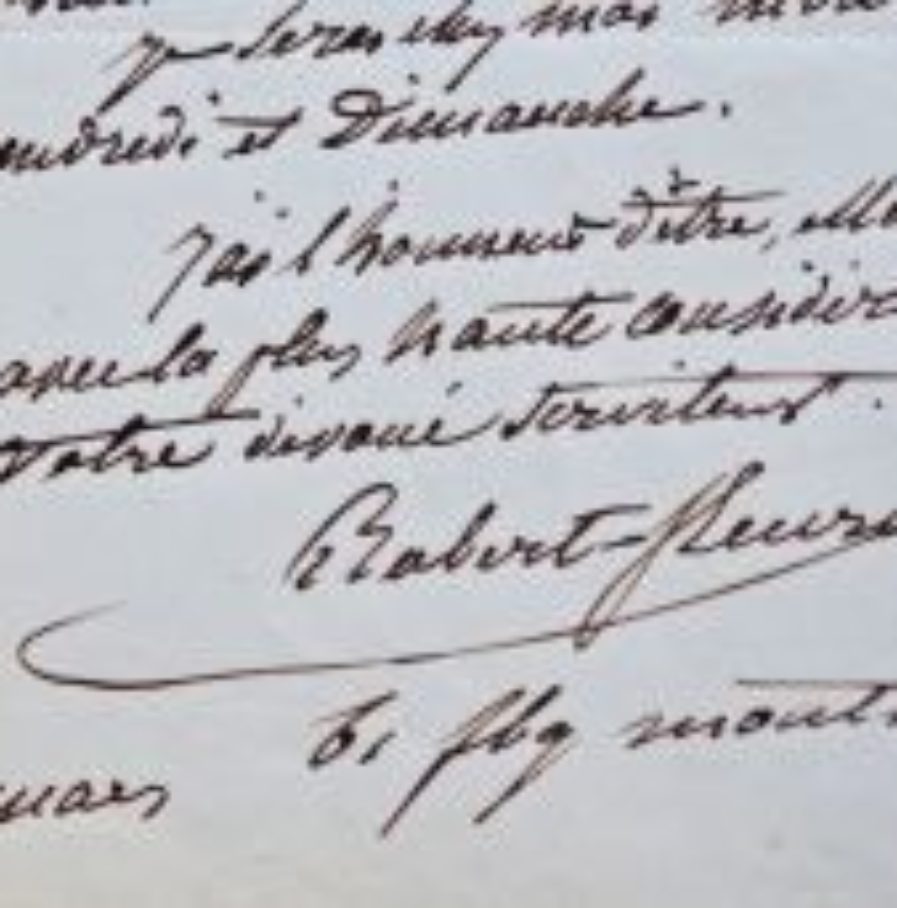 je serai chez moi
vendredi et Dimanche.
j'ai l'honneur d'être,
avec la plus haute considér
Votre dévoué serviteur.
Robert-fleury
6, fbg mont
mars